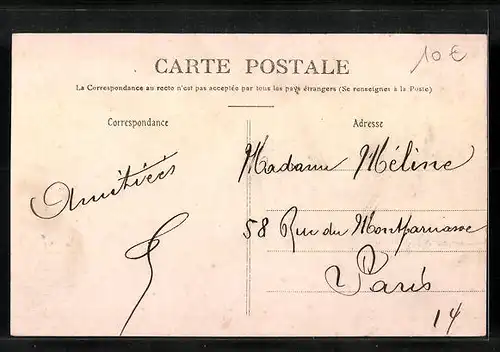 10 €
CARTE POSTALE
La Correspondance au recto n'est pas acceptée par tous les pays étrangers (Se renseigner à la Poste)
Correspondance
Adresse
Amitiés
Madame Méline
58 Rue du Montparnasse
Paris
14